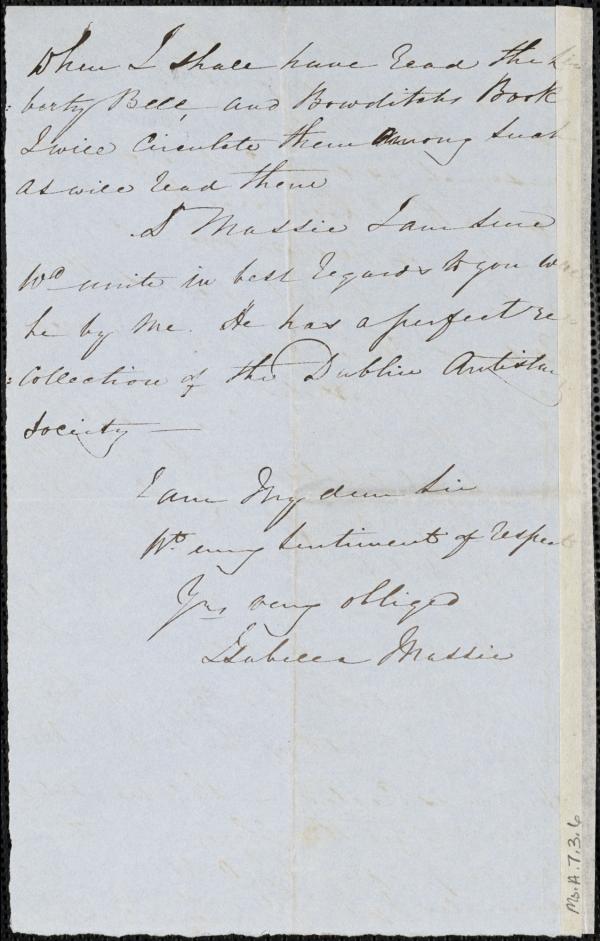 When I shall have read the Li
:berty Bell, and Bowditchs Book
I will circulate them among such
as will read them
Dr Massie I am sure
Wd unite in best regards to you were
he by me. He has a perfect re-
:collection of the Dublin Antislavy
Society —
I am My dear Sir
Wt every sentiment of respect
Yrs very obliged
Isabella Massie
Ms.A.7.3.6